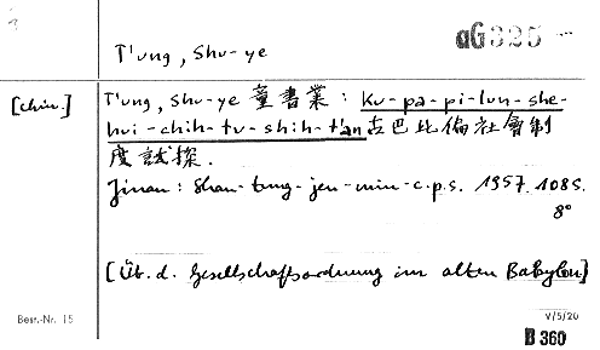 aG 325
T'ung, Shu-ye
[chin.]
T'ung, Shu-ye 童書業: Ku-pa-pi-lun-she-
hui-chih-tu-shih-t'an 古巴比倫社會制
度試探.
Jinan: Shan-tung-jen-min-c.p.s. 1957. 108S.
8°
[Üb. d. Gesellschaftsordnung im alten Babylon]
Best.-Nr. 15
V/5/20
B 360